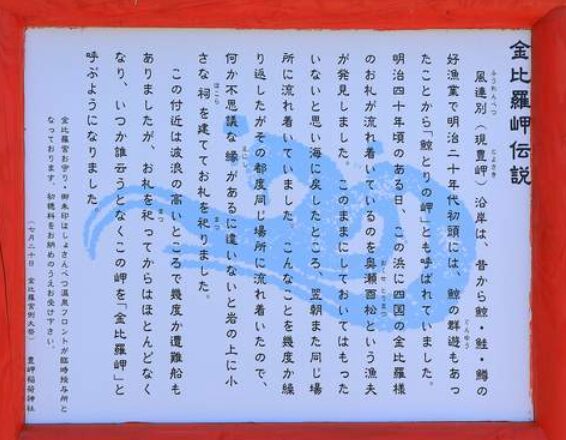 金比羅岬伝説
風連別（現豊岬）沿岸は、昔から鯨・鮭・鱒の
好漁業で明治二十年代初頭には、鯨の群遊もあっ
たことから「鯨とりの岬」とも呼ばれていました。
明治四十年頃のある日、この浜に四国の金比羅様
のお札が流れ着いているのを奥瀬酉松という漁夫
が発見しました。このままにしておいてはもった
いないと思い海に戻したところ、翌朝また同じ場
所に流れ着いていました。こんなことを幾度か繰
り返したがその都度同じ場所に流れ着いたので、
何か不思議な縁があるに違いないと岩の上に小
さな祠を建ててお札を祀りました。
この付近は波浪の高いところで幾度か遭難船も
ありましたが、お札を祀ってからはほとんどなく
なり、いつか誰云うとなくこの岬を「金比羅岬」と
呼ぶようになりました。
金比羅宮お守り・御朱印はしょさんべつ温泉フロントが臨時授与所と
なっております。初穂料をお納めのうえお受け下さい。
（七月二十日　金比羅宮例大祭）　豊岬稲荷神社